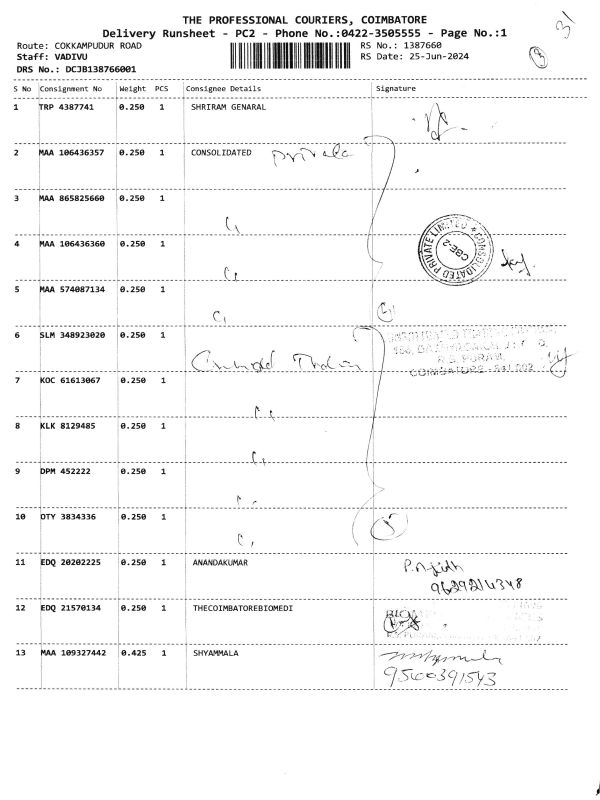 THE PROFESSIONAL COURIERS, COIMBATORE
Delivery Runsheet - PC2 - Phone No.:0422-3505555 - Page No.:1
31
Route: COKKAMPUDUR ROAD
RS No.: 1387660
3
Staff: VADIVU
RS Date: 25-Jun-2024
DRS No.: DCJB138766001
S No Consignment No Weight PCS Consignee Details Signature
1 TRP 4387741 0.250 1 SHRIRAM GENARAL
2 MAA 106436357 0.250 1 CONSOLIDATED private
3 MAA 865825660 0.250 1
4 MAA 106436360 0.250 1
CONSOLIDATED PRIVATE LIMITED
CBE-2
5 MAA 574087134 0.250 1
4
6 SLM 348923020 0.250 1
R.S. PURAM,
COIMBATORE - 641 002
7 KOC 61613067 0.250 1
8 KLK 8129485 0.250 1
9 DPM 452222 0.250 1
10 OTY 3834336 0.250 1
5
11 EDQ 20202225 0.250 1 ANANDAKUMAR
9629214348
12 EDQ 21570134 0.250 1 THECOIMBATOREBIOMEDI
13 MAA 109327442 0.425 1 SHYAMMALA
9500391543